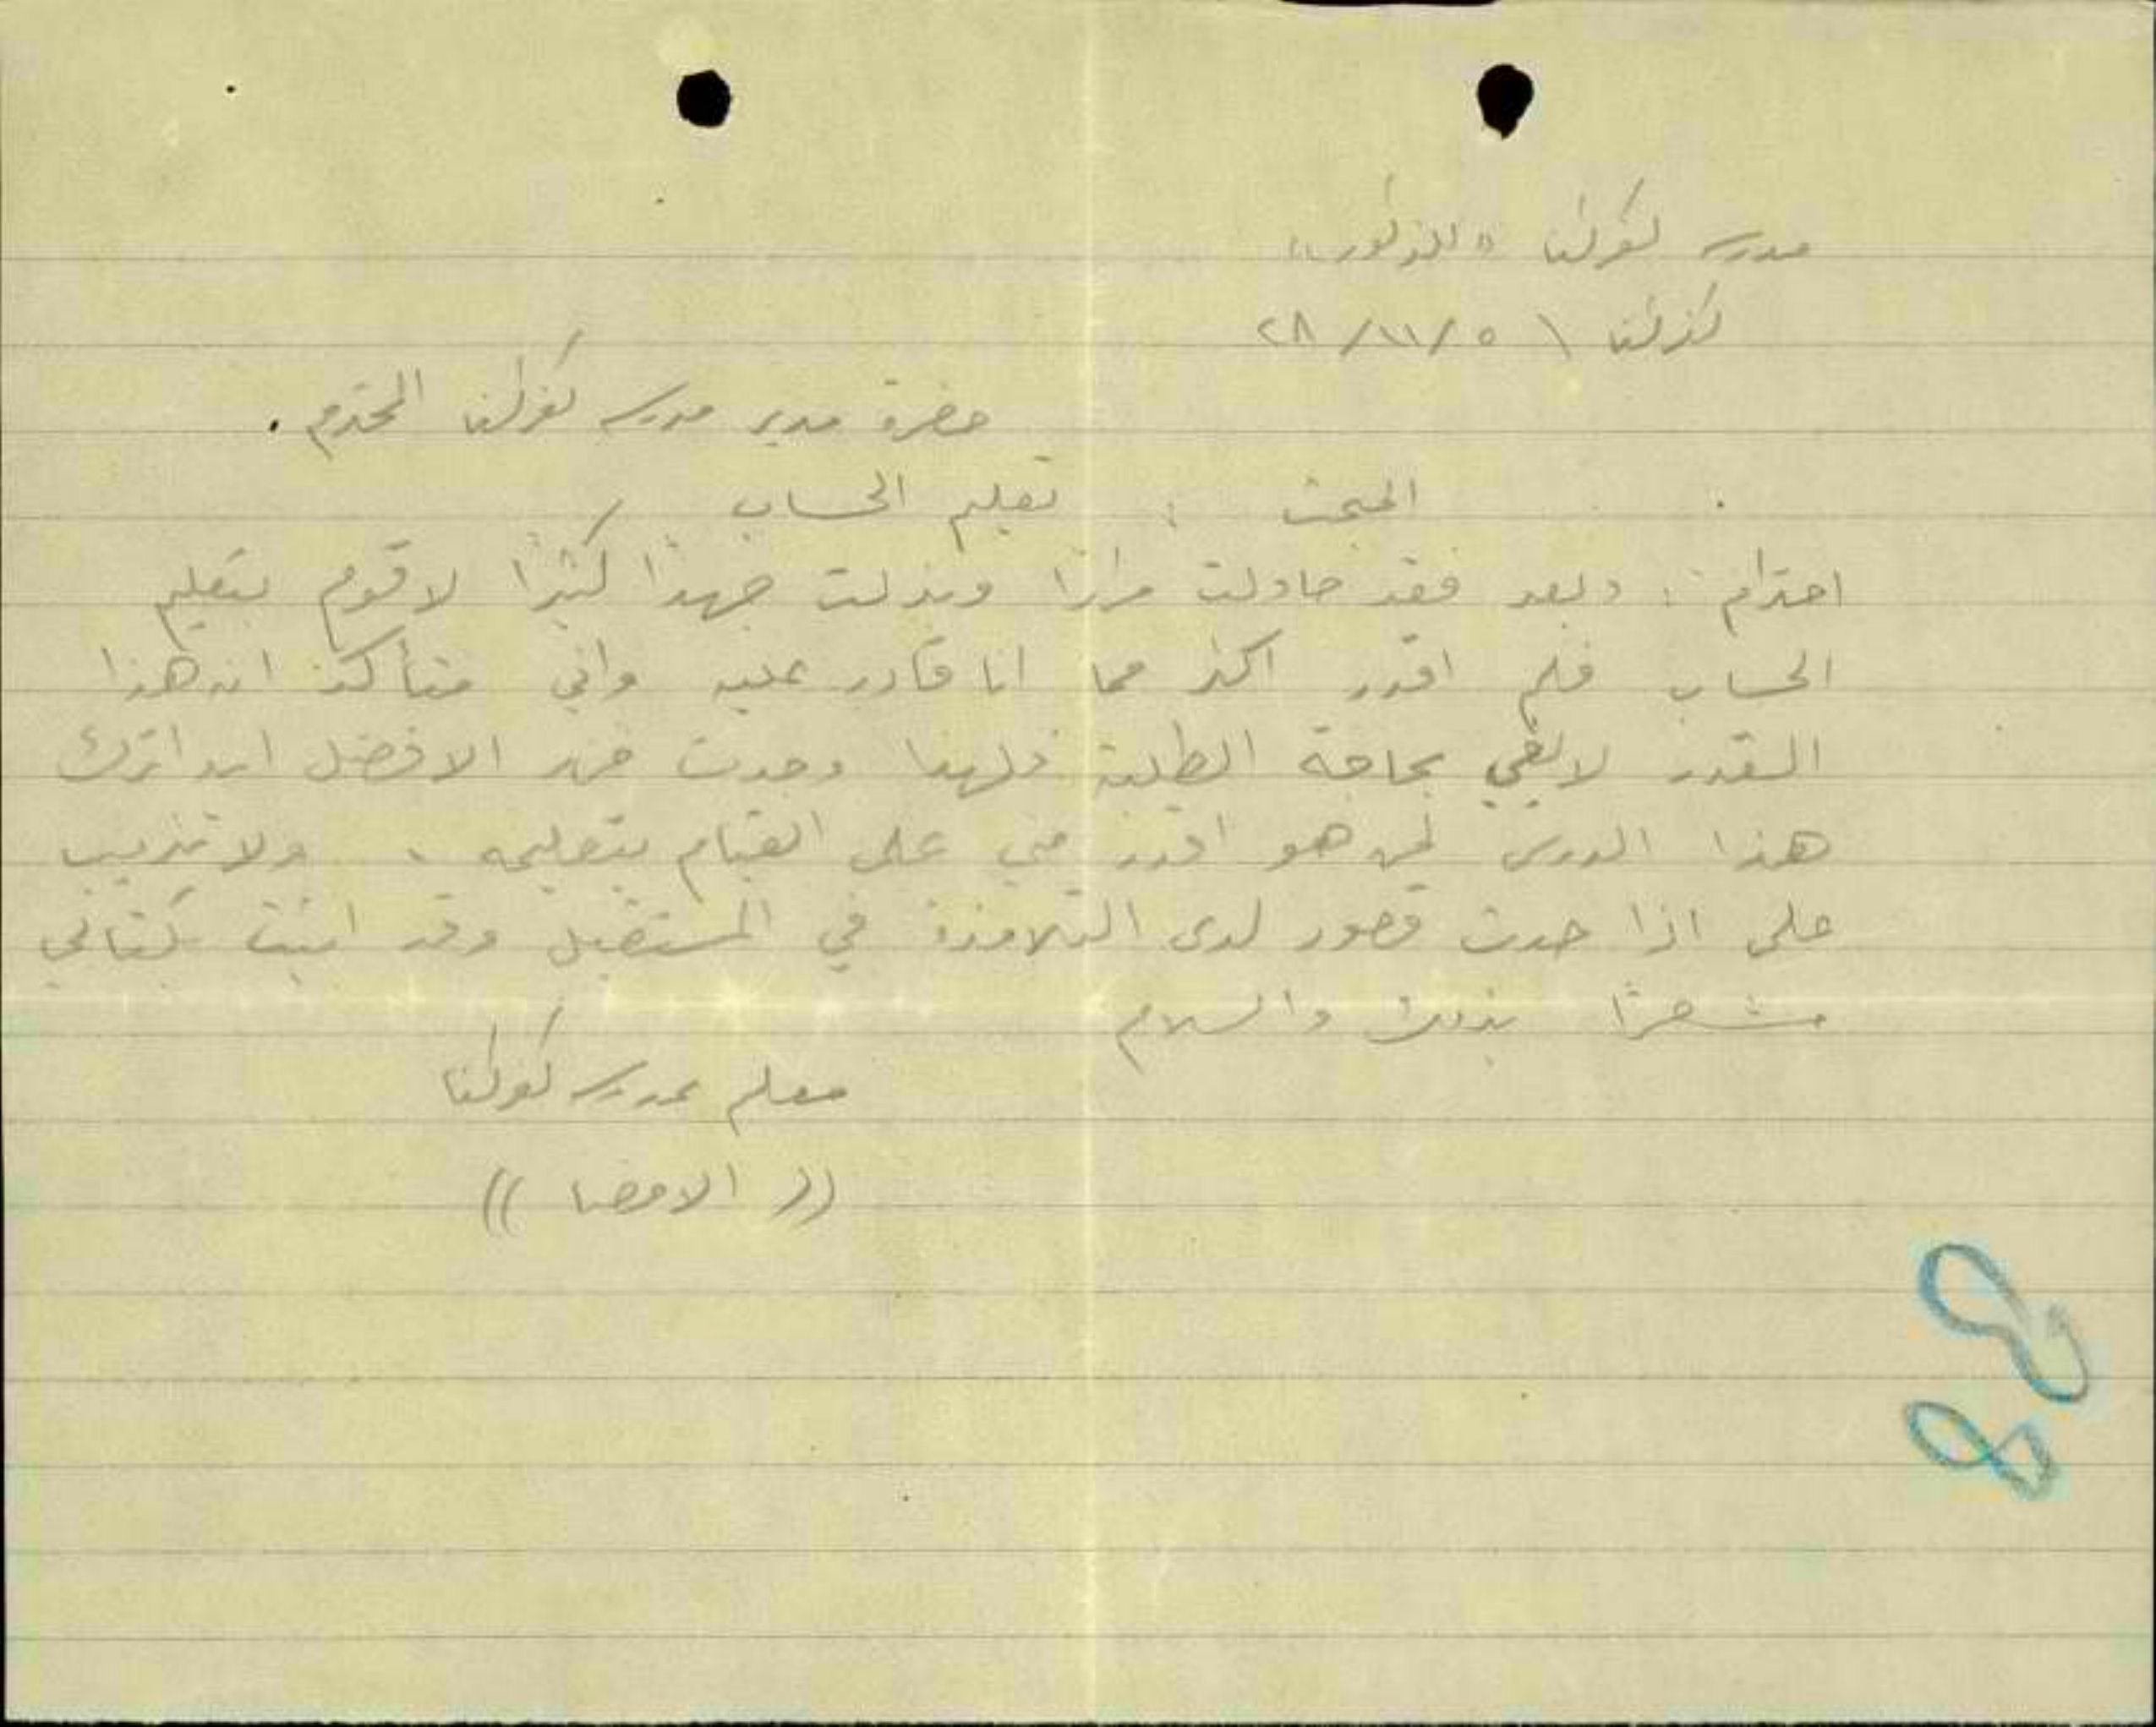 مدرسة كفركنا "للذكور"
كفركنا ٥/١١/٢٨
حضرة مدير مدرسة كفركنا المحترم .
المبحث : تعليم الحساب
احترام : وبعد فقد حاولت مرارًا وبذلت جهدًا كثيرًا لاقوم بتعليم
الحساب فلم اقدر اكثر مما انا قادر عليه واني متأكد ان هذا
القدر لا يفي بحاجة الطلبة فلهذا وجدت من الافضل ان اترك
هذا الدرس لمن هو اقدر مني على القيام بتعليمه . ولا تثريب
على اذا حدث قصور لدى التلامذة في المستقبل وقد اتيت بكتابي
مشعرًا بذلك والسلام
معلم بمدرسة كفركنا
(( الامضا ))